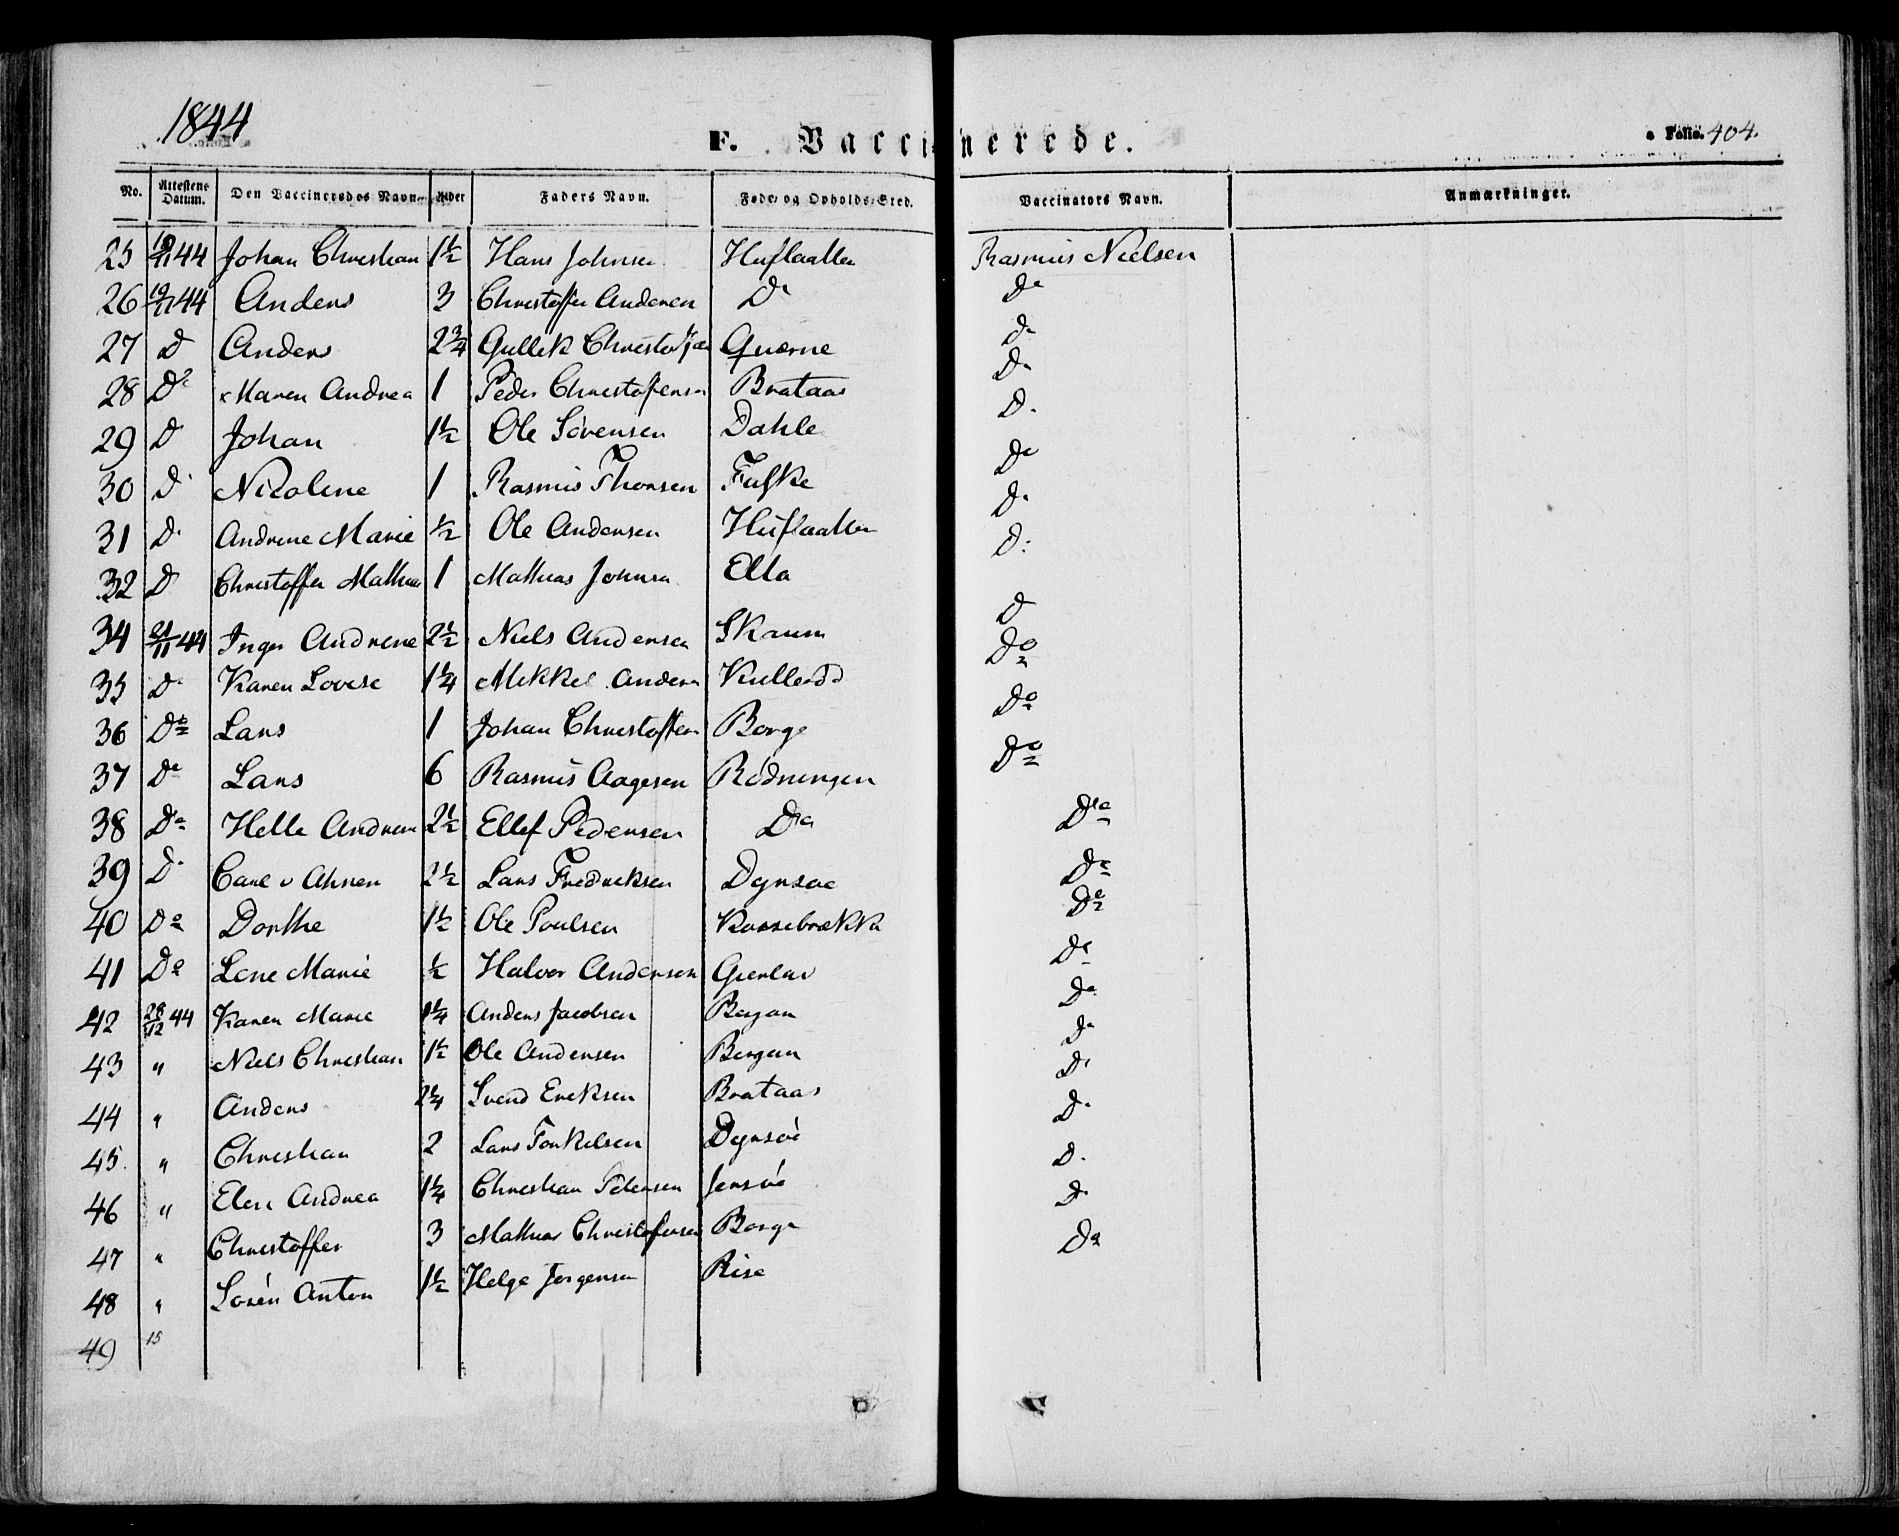 1844
F. Vaccinerede.
Folio. 404.
No. Attestens Datum. Den Vaccineredes Navn. Alder Faders Navn. Føde- og Opholds-Sted. Vaccinators Navn. Anmærkninger.
25 19/11 44 Johan Christian 1½ Hans Johnsen Huflaatten Rasmus Nielsen
26 19/11 44 Anders 3 Christoffer Andersen Do do
27 D Anders 2¾ Gullik Christoffers Qværne do
28 Do Maren Andrea 1 Peder Christoffersen Brataas Do
29 D Johan 1½ Ole Sörensen Dahle D.
30 D. Nicoline 1 Rasmus Thorsen Fuske Do
31 D. Andrine Marie ½ Ole Andersen Huflaatten D.
32 D Christoffer Mathias 1 Mathias Johnsen Ella D.
34 21/11 44 Inger Andrine 2½ Niels Andersen Skaum D
35 Do Karen Lovise 1¼ Mikkel Anders Kullerød Do
36 Do Lars 1 Johan Christoffers Borge Do
37 Do Lars 6 Rasmus Aagesen Rödningen Do
38 Do Helle Andrea 2½ Ellef Pedersen Do Do
39 D. Carl v Ahnen 2½ Lars Fredriksen Dyrsoe Do
40 Do Dorthe 1½ Ole Poulsen Kossebrækka Do
41 Do Lene Marie ½ Halvor Andersen Do
42 28/12 44 Karen Marie 1¼ Anders Jacobsen Bergan Do
43 " Niels Christian 1½ Ole Andersen Bergan do
44 " Anders 2¼ Svend Eriksen Brataas D.
45 " Christian 2 Lars Torkelsen Dyrsöe D.
46 " Elen Andrea 1¼ Christian Petersen Jersöe D.
47 " Christoffer 3 Mathias Christofersen Borge D.
48 " Sören Anton 1½ Helge Jörgensen Rise Do
49 15